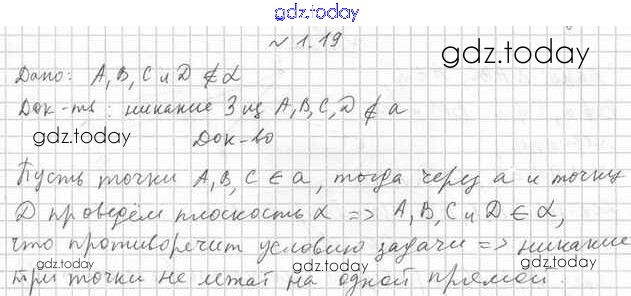 gdz.today
№ 1.19
gdz.today
Дано: A, B, C и D ∉ α
Док-ть: никакие 3 из A, B, C, D ∉ a
gdz.today
Док-во
Пусть точки A, B, C ∈ a, тогда через a и точку
D проведём плоскость α => A, B, C и D ∈ α,
что противоречит условию задачи => никакие
gdz.today
gdz.today
три точки не лежат на одной прямой.